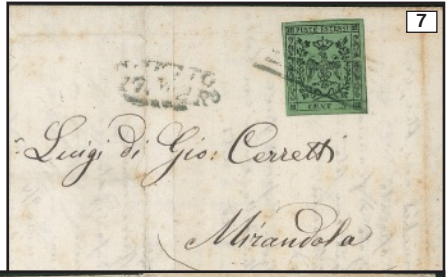 7
POSTE ESTENSI
CENT.
Luigi di Gio: Cerretti
Mirandola